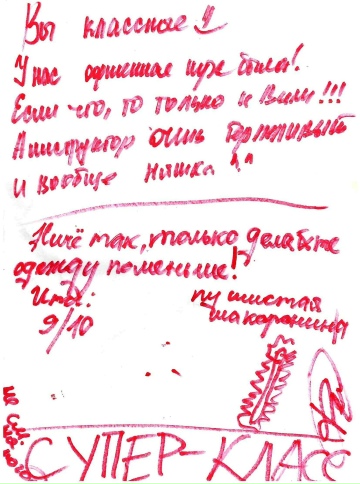 Вы классные!!
У нас офигенная игра была!
Если что, то только к Вам!!!
Инструктор очень терпеливый
и вообще няшка ^^
Ничё так, только делайте
одежду поменьше!
Итог:
9/10
пушистая
макаронина
СУПЕР-КЛАСС